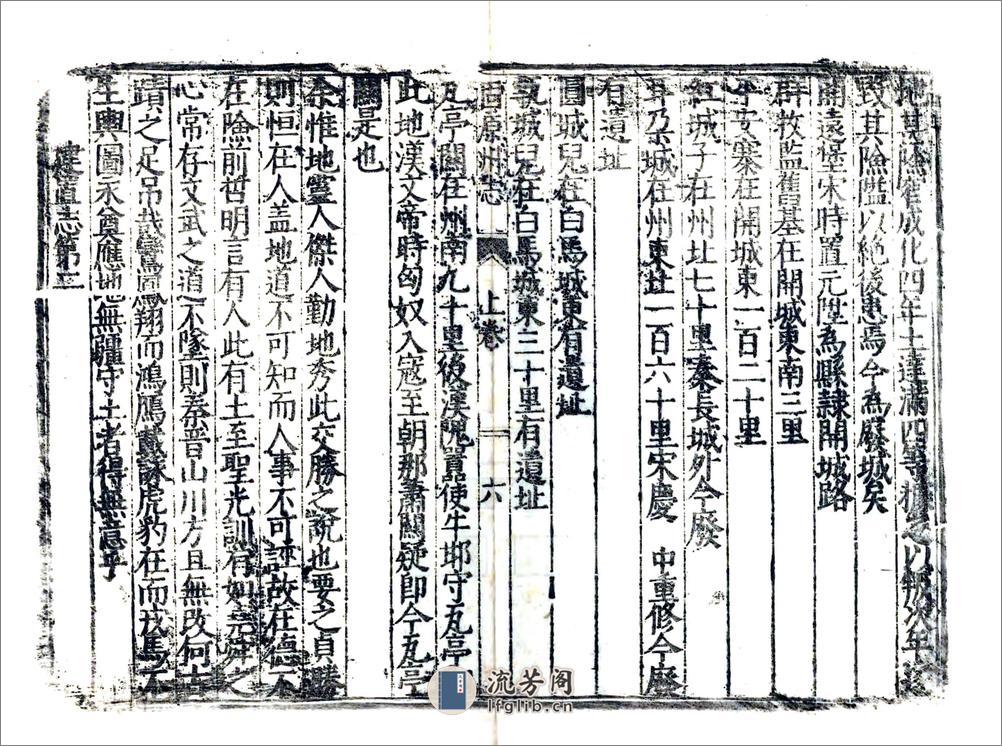 地其險舊成化四年土達滿四等據之以叛次年
毀其險隘以絕後患焉今為廢城矣
開遠堡宋時置元陞為縣隷開城路
群牧監舊基在開城東南三里
平安寨在開城東一百二十里
紅城子在州北七十里秦長城外今廢
平夏城在州東北一百六十里宋慶 中重修今廢
有遺址
圓城兒在白馬城東有遺址
執城兒在白馬城東三十里有遺址
固原州志 上卷 六
瓦亭關在州南九十里後漢隗囂使牛邯守瓦亭
此地漢文帝時匈奴入寇至朝那蕭關疑即今瓦亭
關是也
余惟地靈人傑人勤地秀此交勝之說也要之貞勝
則恒在人盖地道不可知而人事不可誣故在德不
在險前哲明言有人此有土至聖光訓有如堯舜之
心常存文武之道不墜則秦晉山川方且無改何古
蹟之足吊哉鸞鳳翔而鴻鴈 虎豹在而戎馬不
生輿圖永奠應地無疆守土者得無意乎
建置志第三
流芳阁
lfglib.cn